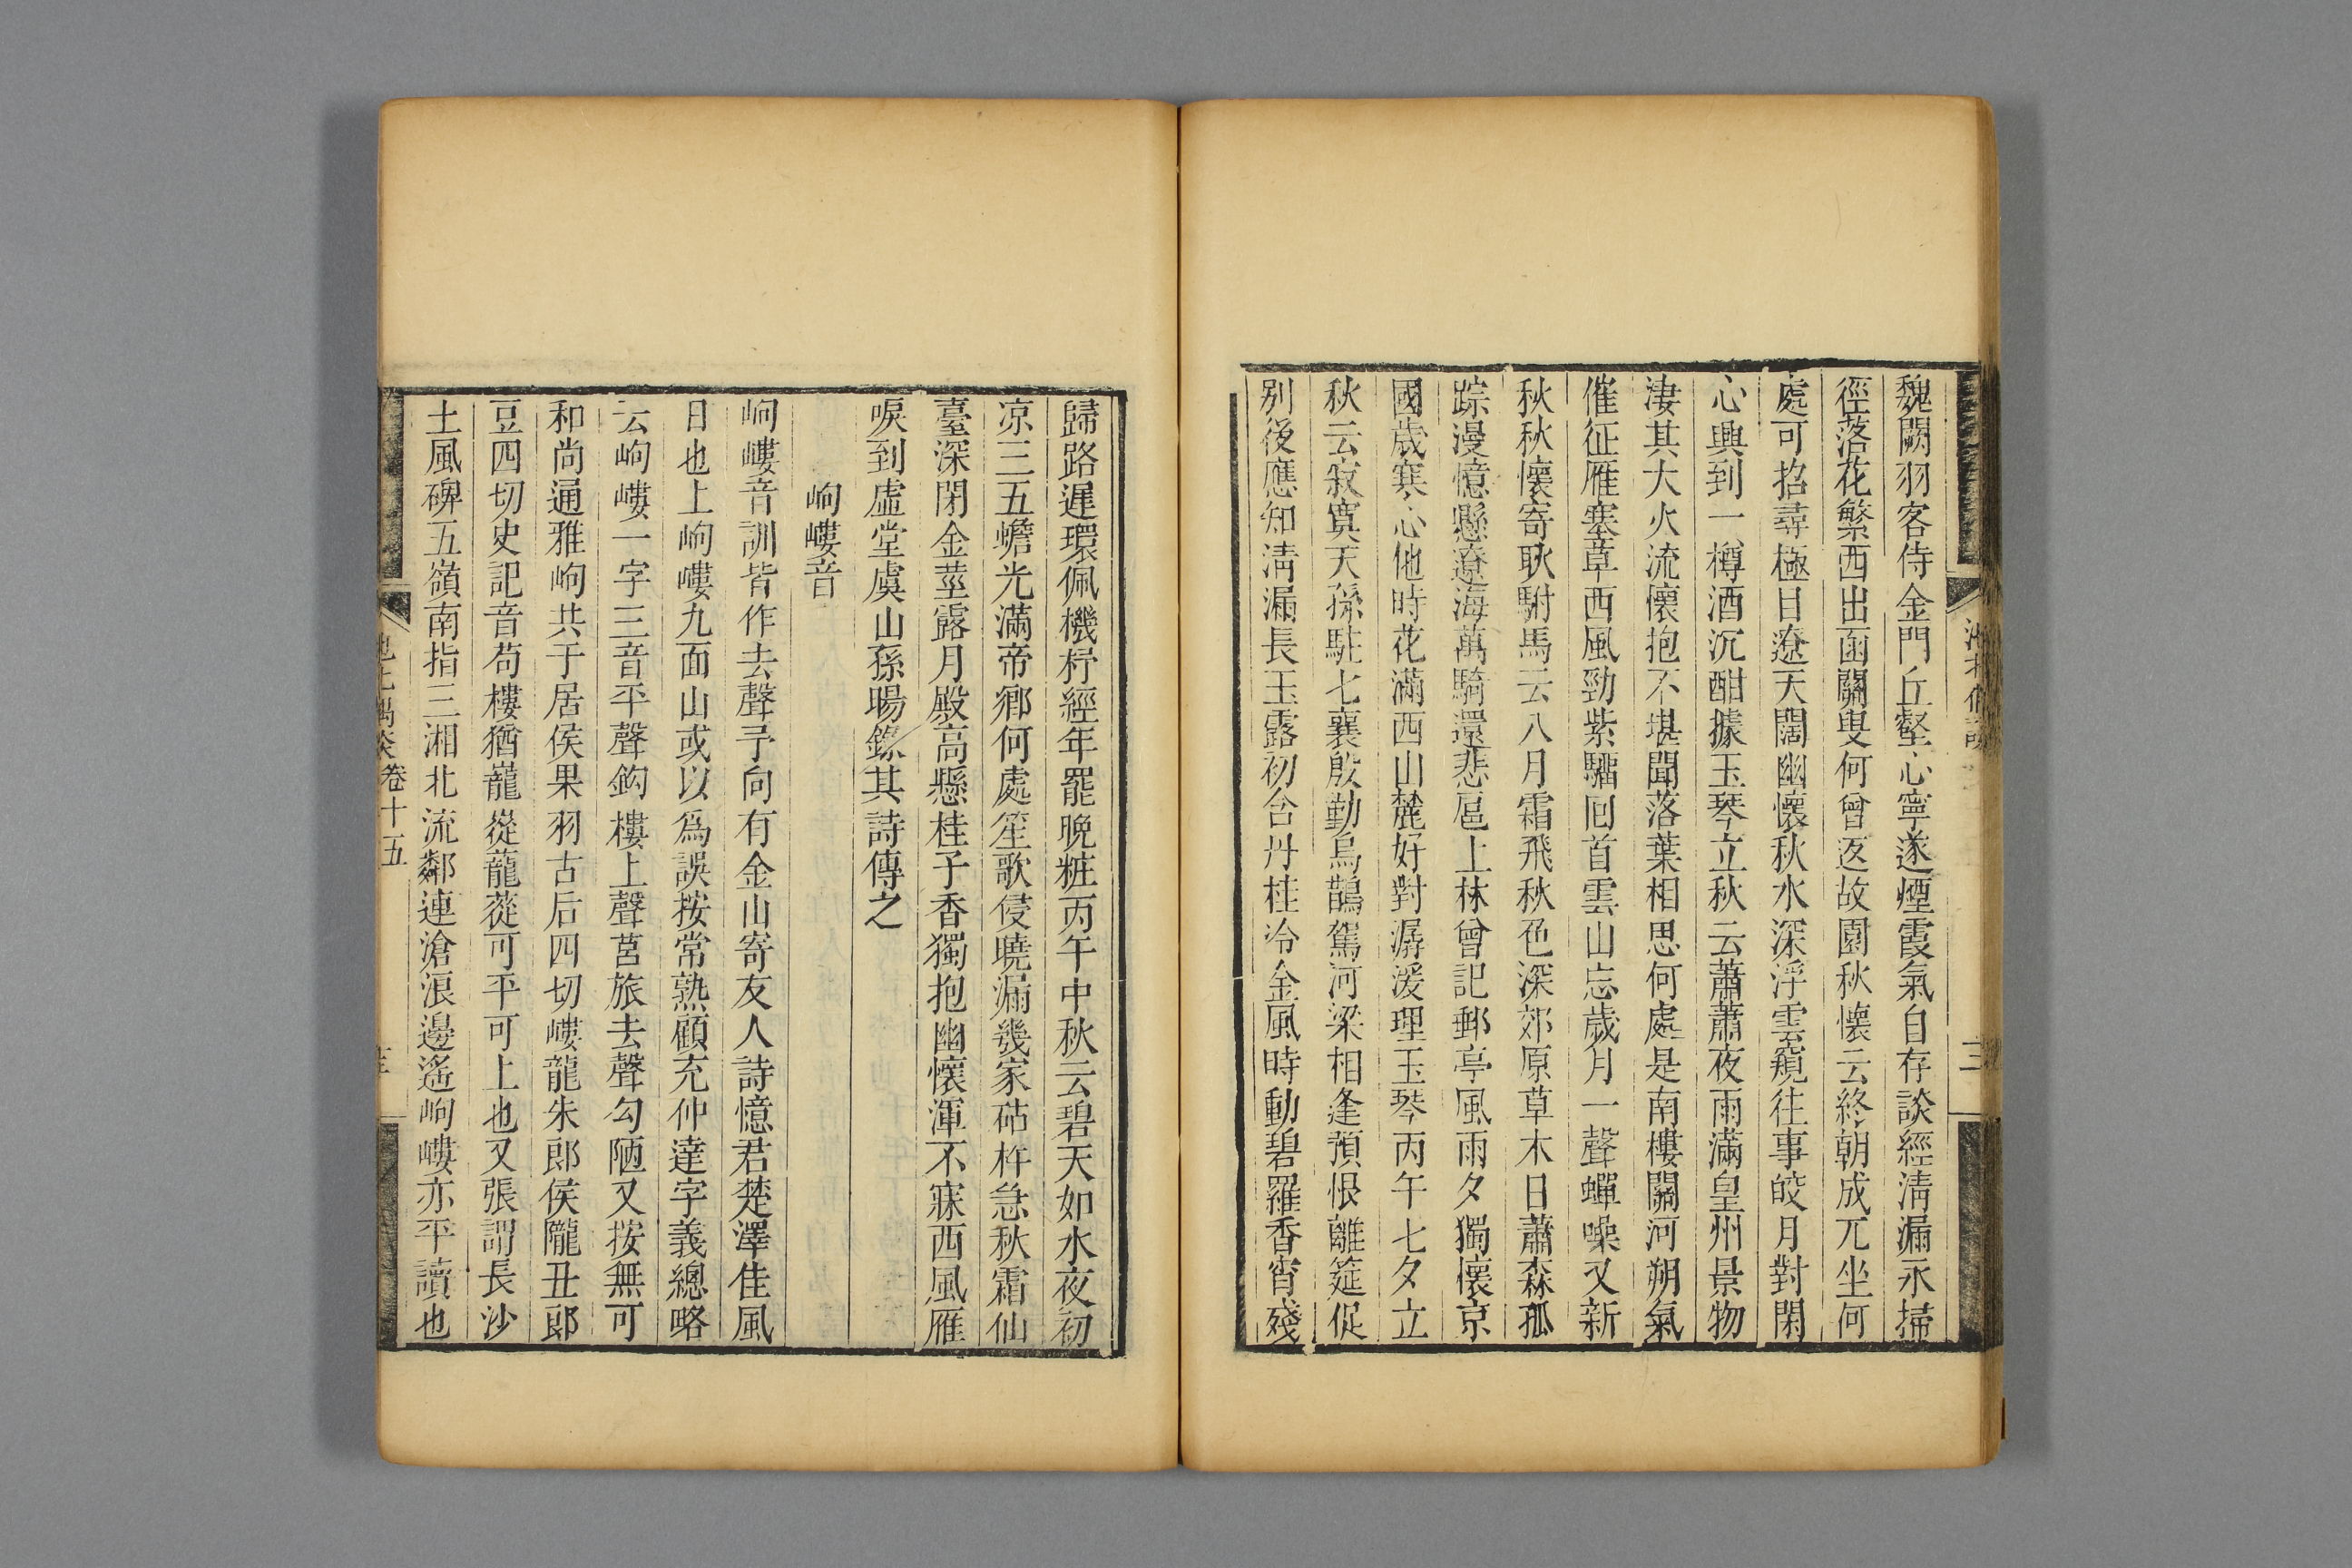 魏闕羽客侍金門丘壑心寧遂煙霞氣自存談經淸漏永掃
徑落花繁西出函關叟何曾返故園秋懷云終朝成兀坐何
處可招尋極目遼天闊幽懷秋水深浮雲窺往事皎月對閑
心興到一樽酒沉酣據玉琴立秋云蕭蕭夜雨滿皇州景物
淒其大火流懷抱不堪聞落葉相思何處是南樓關河朔氣
催征雁塞草西風勁紫騮囘首雲山忘歲月一聲蟬噪又新
秋秋懷寄耿駙馬云八月霜飛秋色深郊原草木日蕭森孤
踪漫憶懸遼海萬騎還悲扈上林曾記郵亭風雨夕獨懷京
國歲寒心他時花滿西山麓好對潺湲理玉琴丙午七夕立
秋云寂寞天孫駐七襄殷勤烏鵲駕河梁相逢預恨離筵促
別後應知淸漏長玉露初含丹桂冷金風時動碧羅香宵殘
歸路遲環佩機杼經年罷晚粧丙午中秋云碧天如水夜初
凉三五蟾光滿帝鄉何處笙歌侵曉漏幾家砧杵急秋霜仙
臺深閉金莖露月殿高懸桂子香獨抱幽懷渾不寐西風雁
唳到虛堂虞山孫暘錄其詩傳之
岣嶁音
岣嶁音訓皆作去聲予向有金山寄友人詩憶君楚澤佳風
日也上岣嶁九面山或以爲誤按常熟顧充仲達字義總略
云岣嶁一字三音平聲鈎樓上聲莒旅去聲勾陋又按無可
和尚通雅岣共于居侯果羽古后四切嶁龍朱郎侯隴丑郞
豆四切史記音苟樓猶巃嵸蘢蓯可平可上也又張謂長沙
土風碑五嶺南指三湘北流鄰連滄浪邊遙岣嶁亦平讀也
卷十五